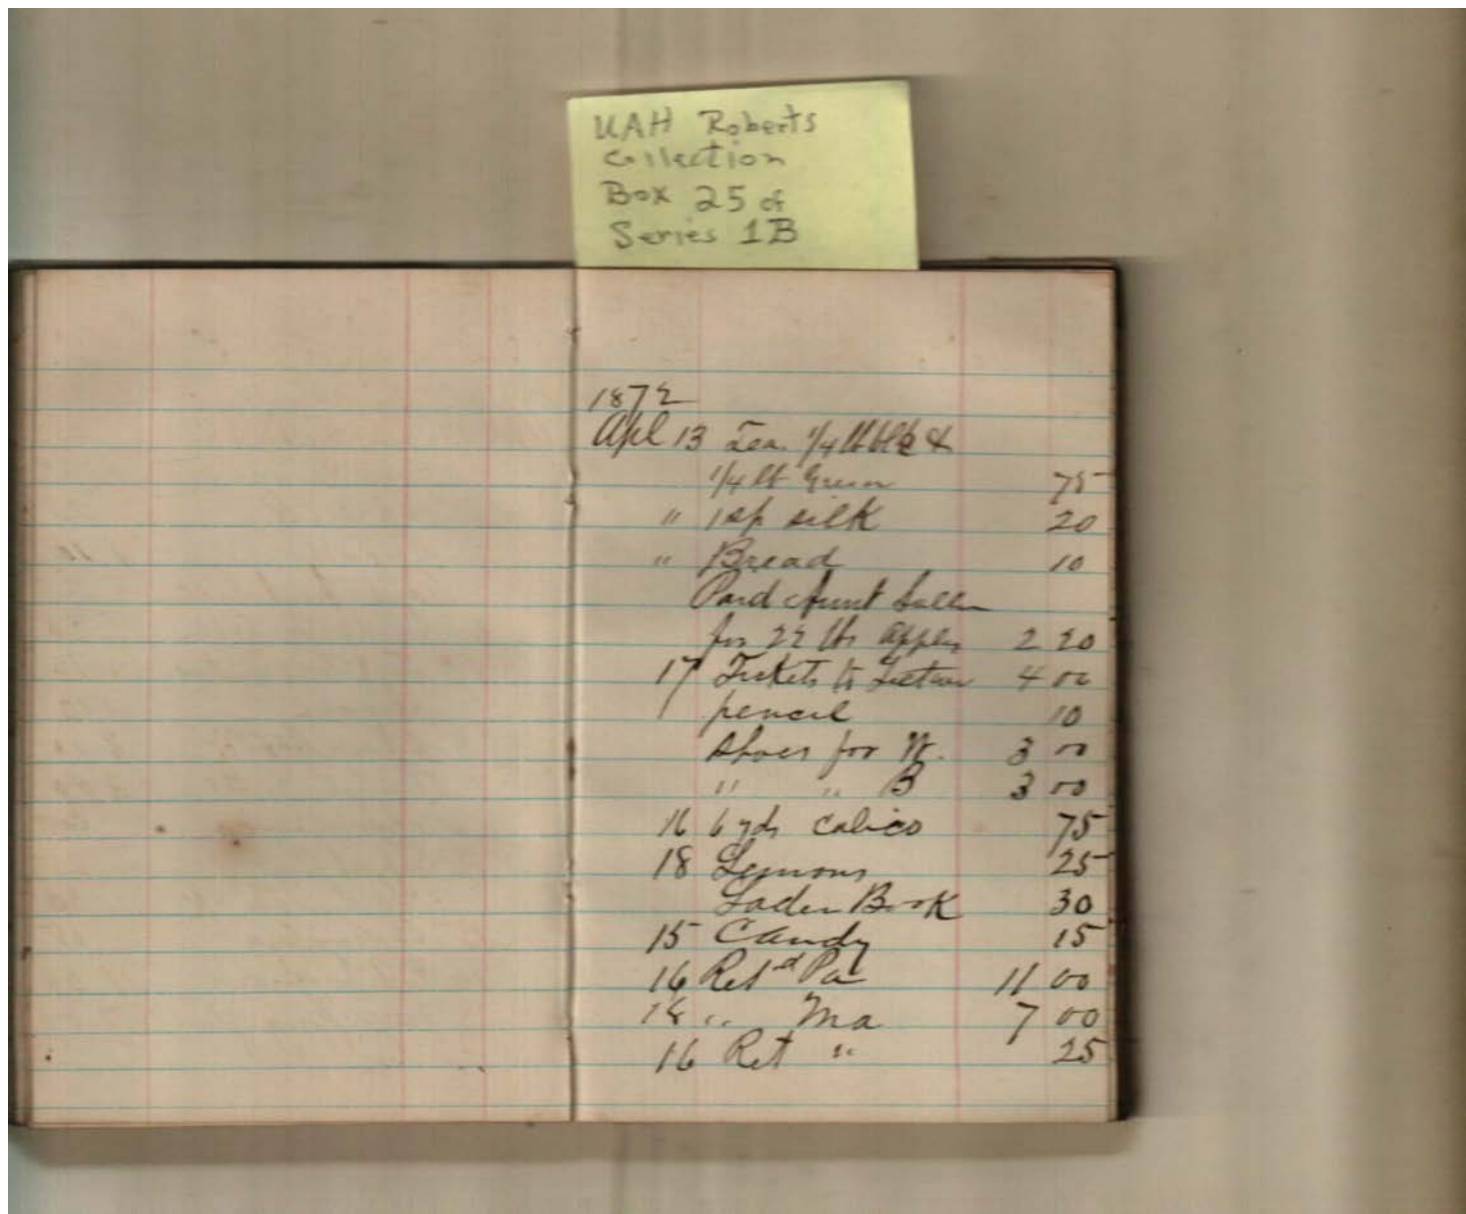 UAH Roberts
Collection
Box 25 of
Series 1B
1872
Apl 13 Tea. 1/4 lb blk &
1/4 lb Green 75
" 1 sp silk 20
" Bread 10
Paid Aunt
for 22 lbs apples 2 20
17 Tickets to 4 00
pencil 10
Shoes for W. 3 00
" " B 3 00
16 6 yds calico 75
18 Lemons 25
Book 30
15 Candy 15
16 Ret d Pa 11 00
18 " Ma 7 00
16 Ret " 25